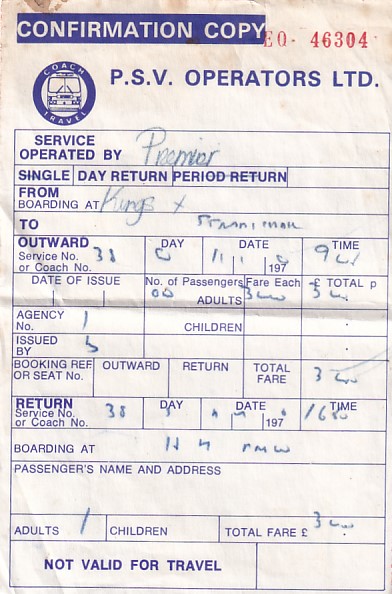 CONFIRMATION COPY EO- 46304
COACH TRAVEL
P.S.V. OPERATORS LTD.
SERVICE OPERATED BY Premier
SINGLE DAY RETURN PERIOD RETURN
FROM
BOARDING AT Kings X
TO
OUTWARD DAY DATE TIME
Service No. or Coach No. 38 197
DATE OF ISSUE No. of Passengers Fare Each £ TOTAL p
ADULTS
AGENCY No. 1 CHILDREN
ISSUED BY
BOOKING REF or SEAT No. OUTWARD RETURN TOTAL FARE
RETURN DAY DATE TIME
Service No. or Coach No. 38 197
BOARDING AT
PASSENGER'S NAME AND ADDRESS
ADULTS 1 CHILDREN TOTAL FARE £
NOT VALID FOR TRAVEL